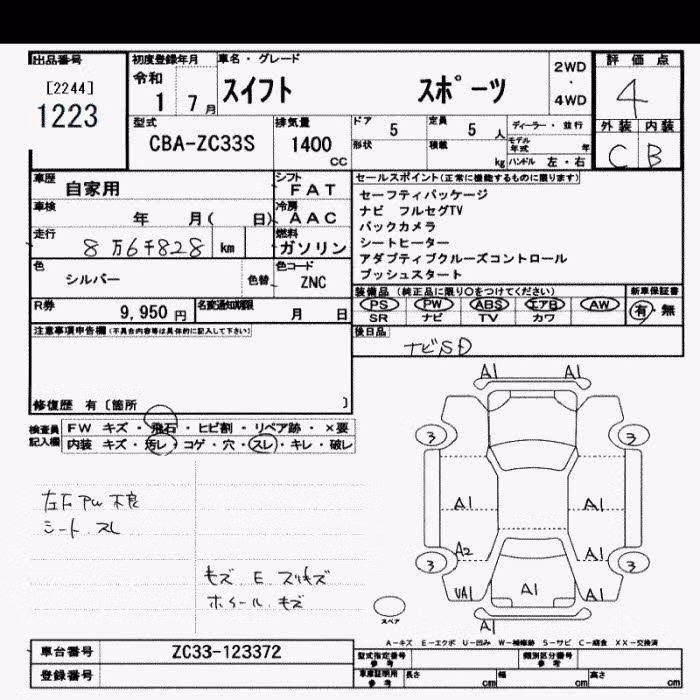 出品番号 初度登録年月 車名・グレード 2WD・4WD 評価点
[2244]
1223
令和 1 7月 スイフト スポーツ 4
型式 排気量 ドア 5 定員 5人 ディーラー・並行 外装 内装
CBA-ZC33S 1400cc 形状 積載 kg モデル年式 年 ハンドル 左・右 C B
車歴 自家用 シフト FAT セールスポイント(正常に機能するものに限ります)
車検 年 月( 日) 冷房 AAC
セーフティパッケージ
ナビ フルセグTV
バックカメラ
シートヒーター
アダプティブクルーズコントロール
プッシュスタート
走行 8万6千828 km 燃料 ガソリン
色 シルバー 色替 色コード ZNC
装備品(純正品に限り○をつけてください) 新車保証書
PS PW ABS エアB AW 有・無
SR ナビ TV カワ
R券 9,950円 名変通知期限 月 日
後日品 ナビSD
注意事項申告欄(不具合内容等は具体的に記入して下さい)
修復歴 有〔箇所 〕
検査員記入欄
FW キズ・飛石・ヒビ割・リペア跡・×要
内装 キズ・汚レ・コゲ・穴・スレ・キレ・破レ
左下アw不良
シート スレ
キズ E スリキズ
ホイール キズ
A1 A1
3 3
A1 A1
A2 A1
3 3
UA1 A1 A1
A1
スペア
A-キズ E-エクボ U-凹み W-補修跡 S-サビ C-腐食 XX-交換済
車台番号 ZC33-123372 型式指定番号 参考 類別区分番号 参考
登録番号 車庫証明用 参考 長さ cm 幅 cm 高さ cm